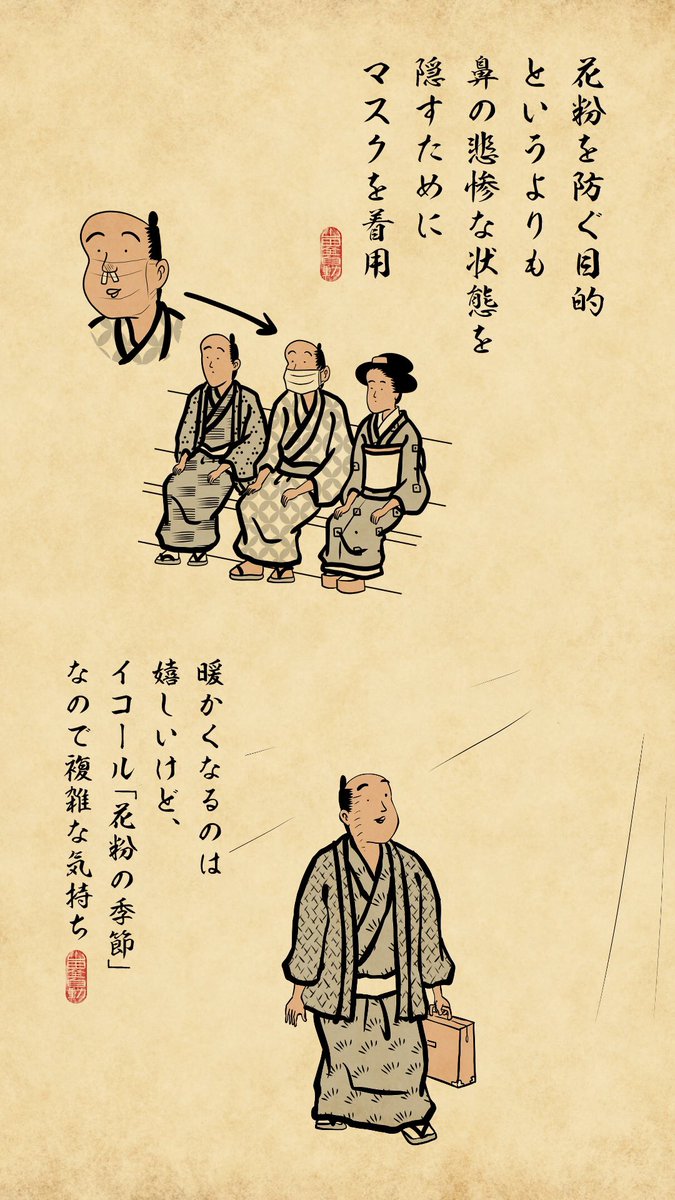 花粉を防ぐ目的
というよりも
鼻の悲惨な状態を
隠すために
マスクを着用
暖かくなるのは
嬉しいけど、
イコール「花粉の季節」
なので複雑な気持ち